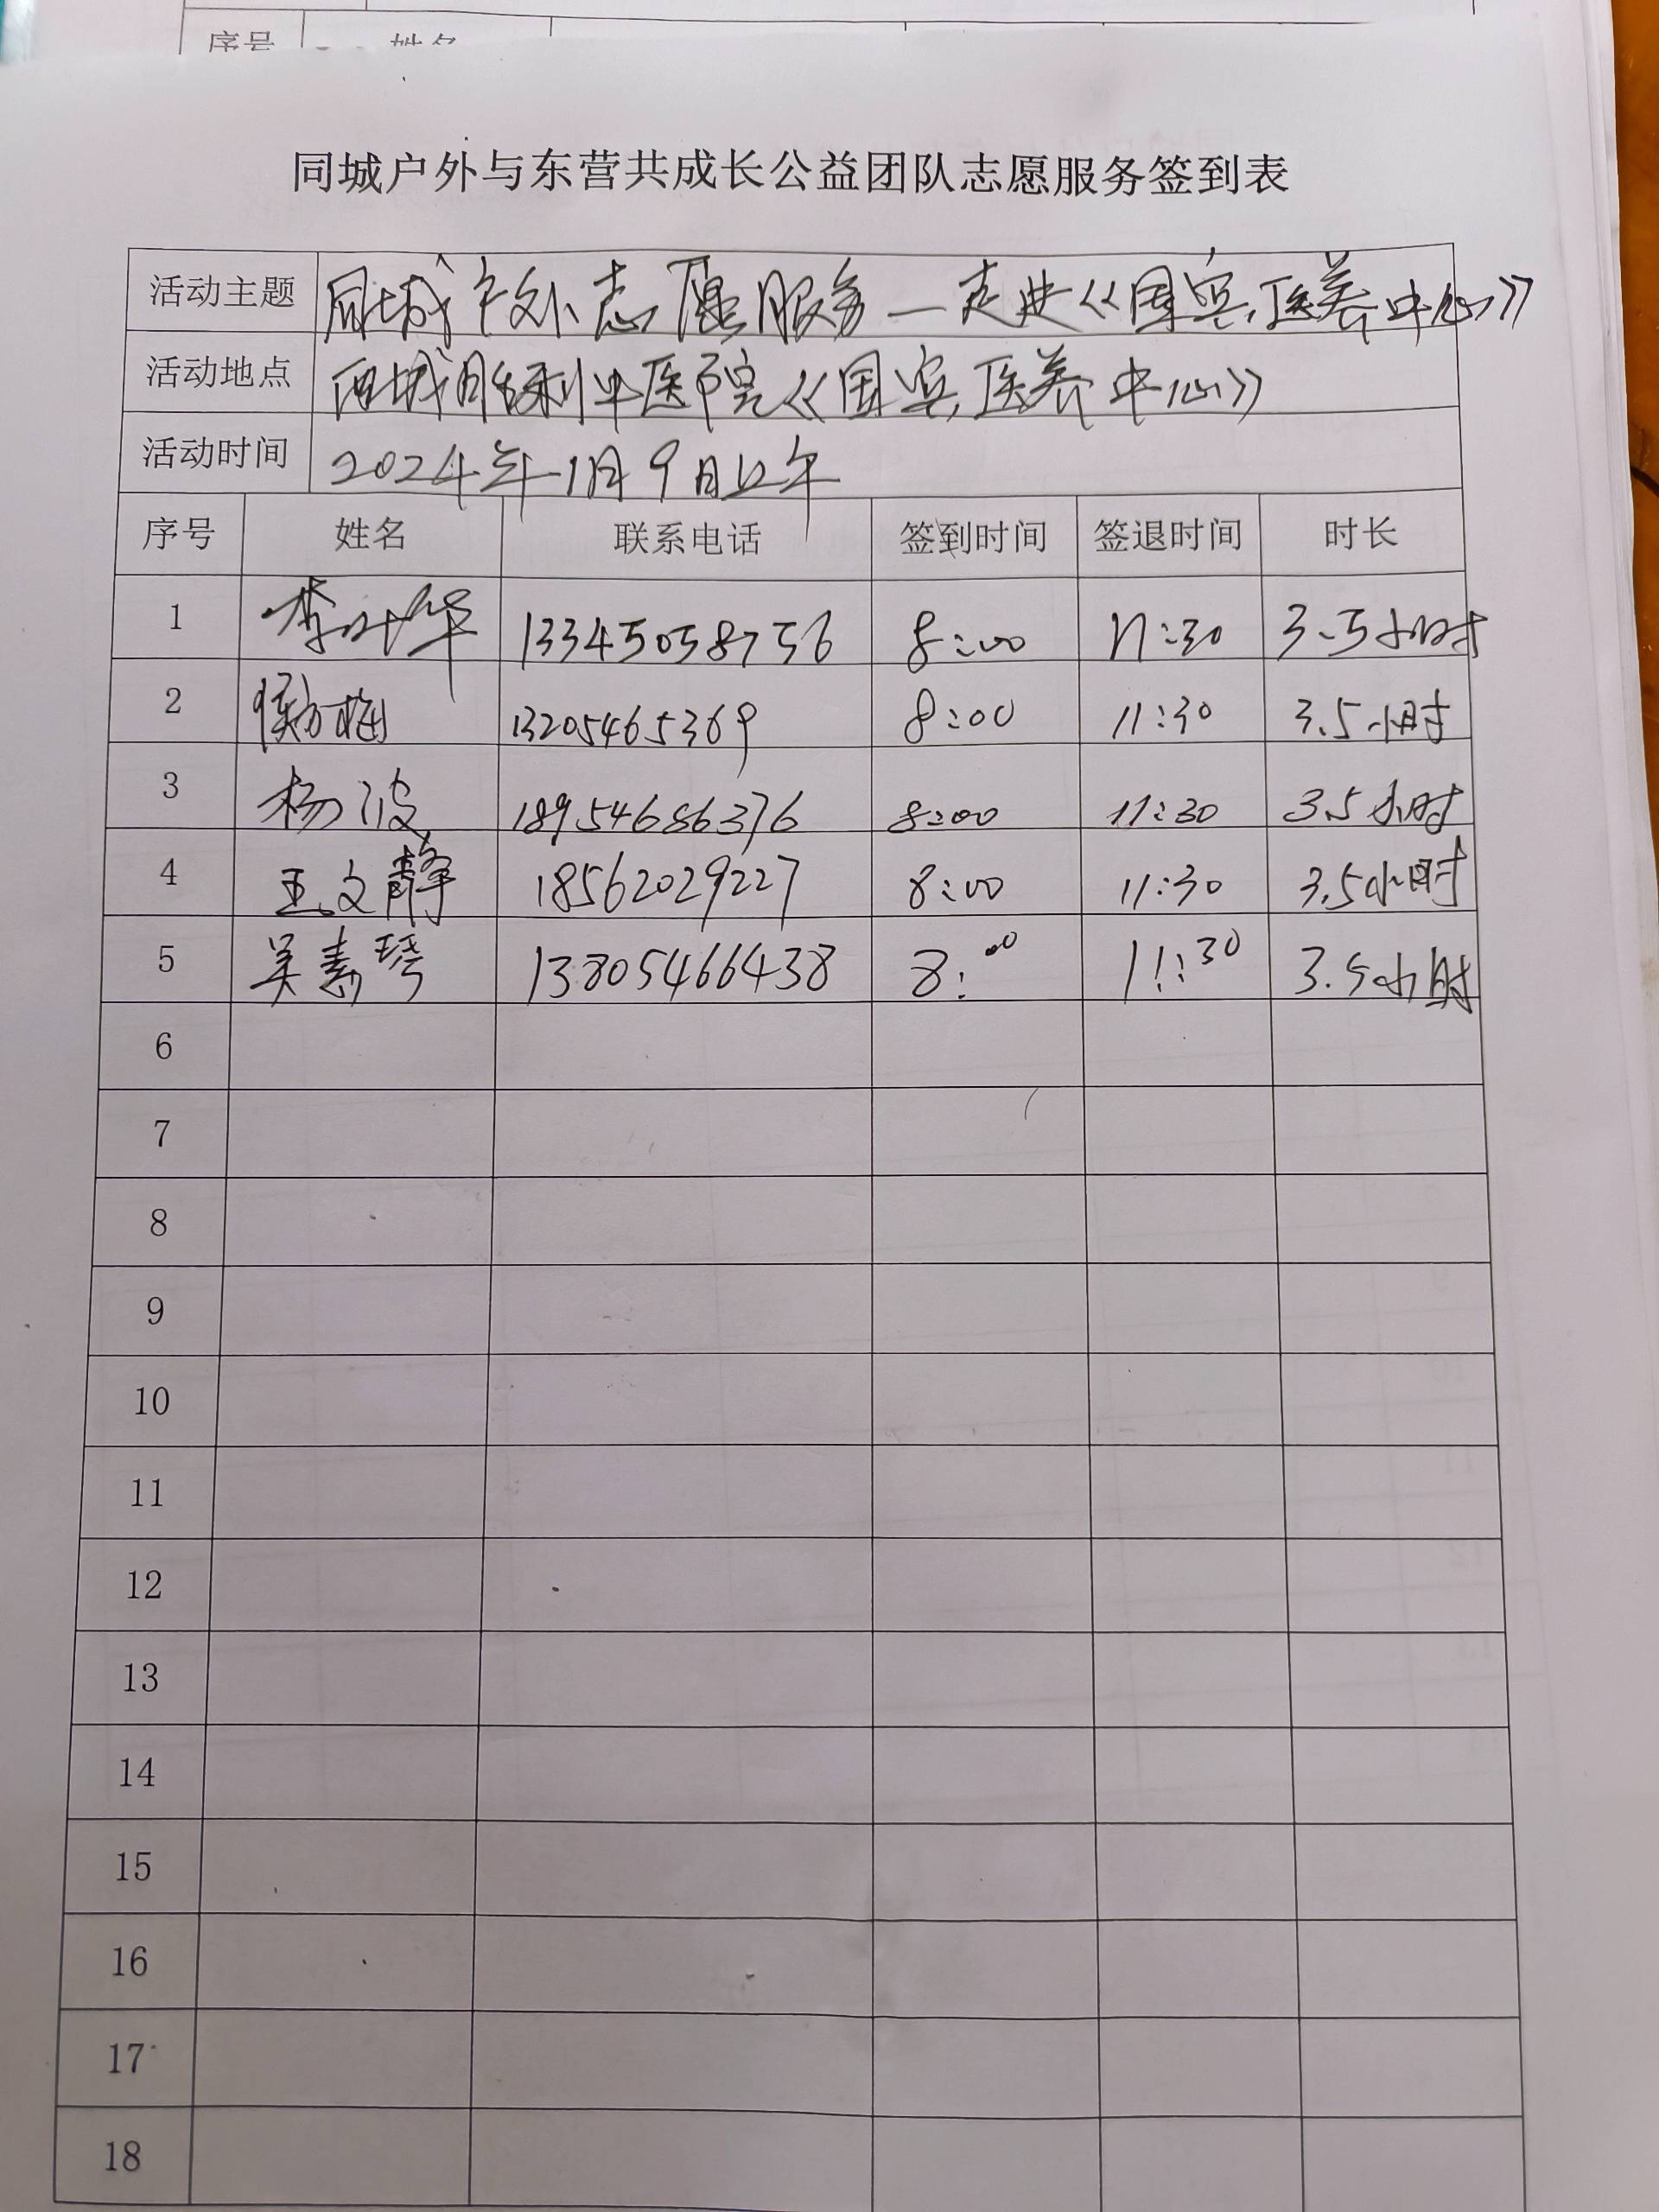 序号 姓名
同城户外与东营共成长公益团队志愿服务签到表
活动主题 同城户外志愿服务—走进《国宾医养中心》
活动地点 西城胜利中医院《国宾医养中心》
活动时间 2024年1月9日上午
序号 姓名 联系电话 签到时间 签退时间 时长
1 李叶华 13345058756 8:00 11:30 3.5小时
2 侯方梅 13205465369 8:00 11:30 3.5小时
3 杨波 18954686376 8:00 11:30 3.5小时
4 王文静 18562029227 8:00 11:30 3.5小时
5 吴素琴 13805466438 8:00 11:30 3.5小时
6
7
8
9
10
11
12
13
14
15
16
17
18